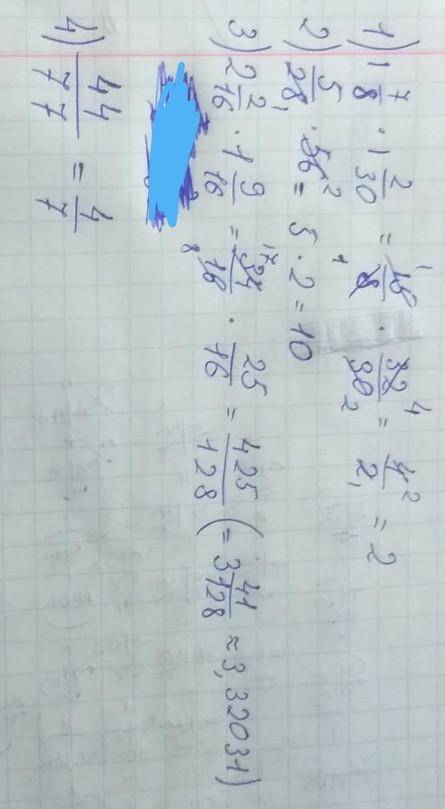 1) 1 7/8 · 1 2/30 = 15/8 · 32/30 = 4/2 = 2
2) 5/28 · 56 = 5 · 2 = 10
3) 2 2/16 · 1 9/16 = 34/16 · 25/16 = 425/128 (= 3 41/128 ≈ 3,32031)
4) 44/77 = 4/7